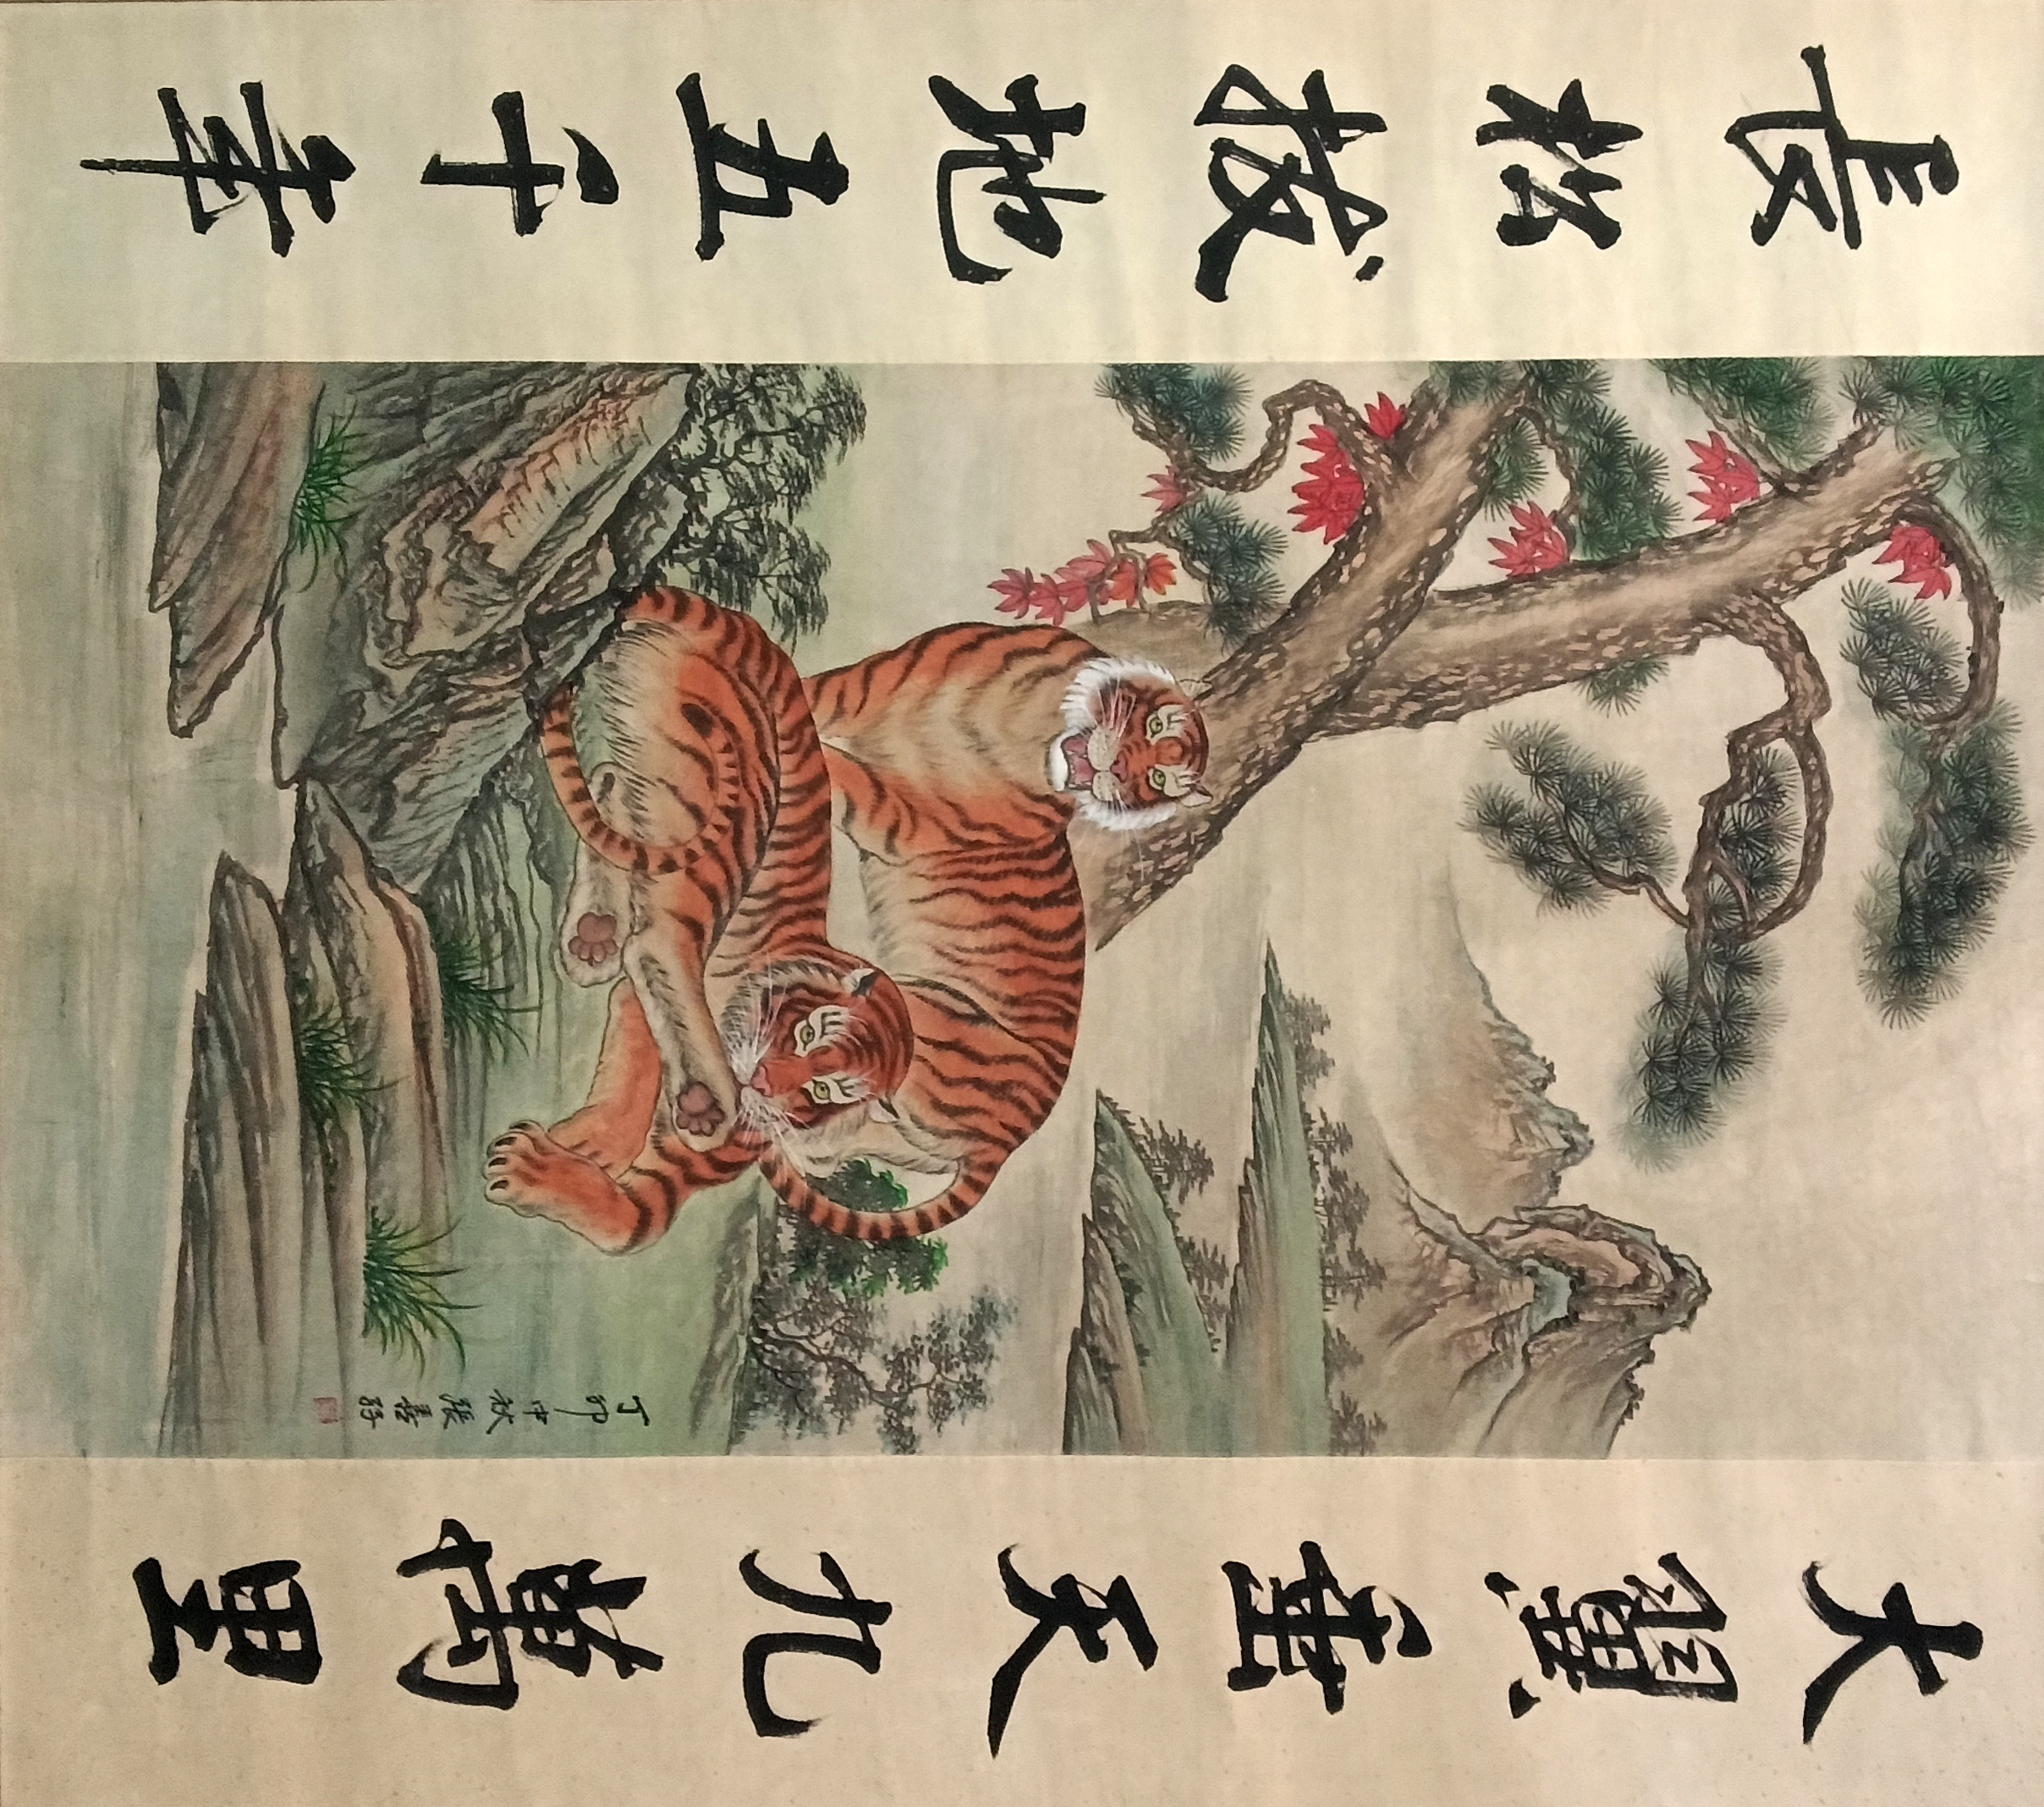 大翼垂天九萬里
丁卯中秋張善孖
長松拔地五千年